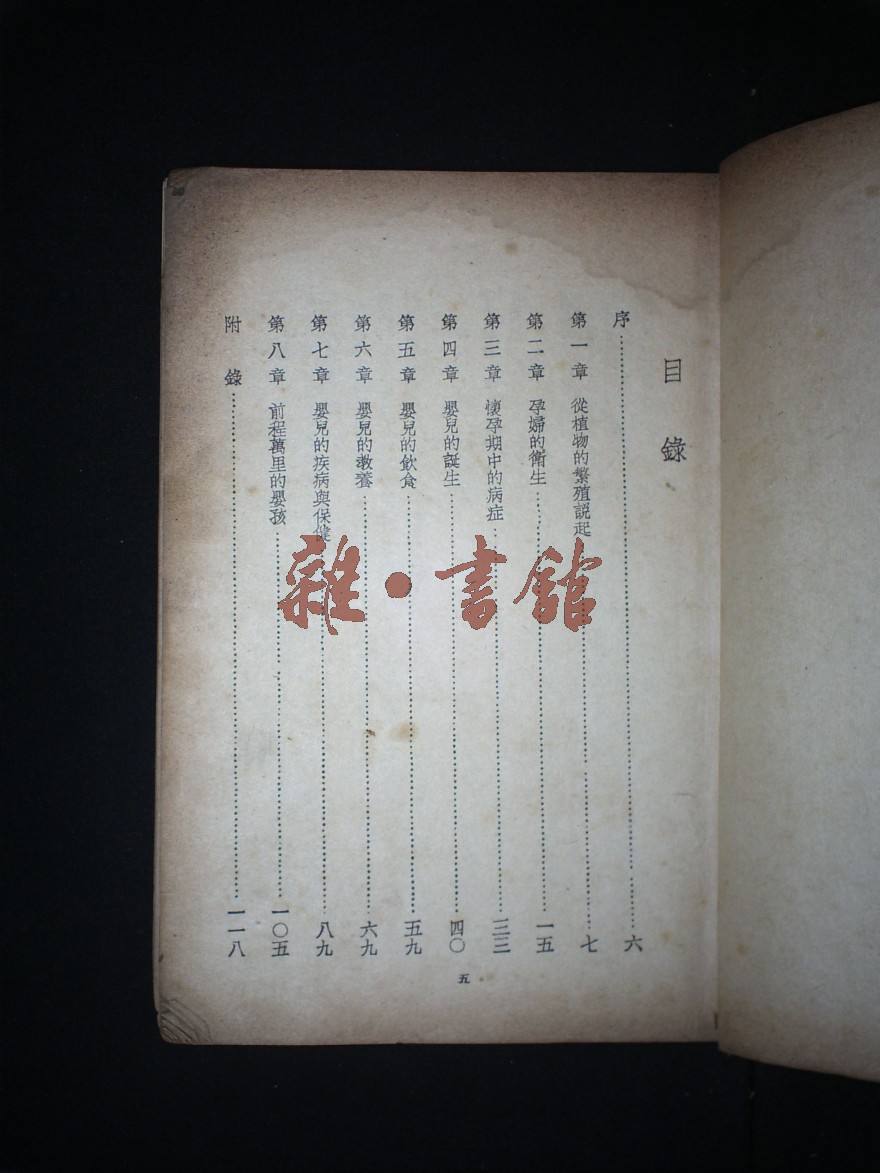 目錄
序……六
第一章 從植物的繁殖説起……七
第二章 孕婦的衛生……一五
第三章 懷孕期中的病症……三三
第四章 嬰兒的誕生……四〇
第五章 嬰兒的飲食……五九
第六章 嬰兒的教養……六九
第七章 嬰兒的疾病與保健……八九
第八章 前程萬里的嬰孩……一〇五
附錄……一一八
五
雜·書館